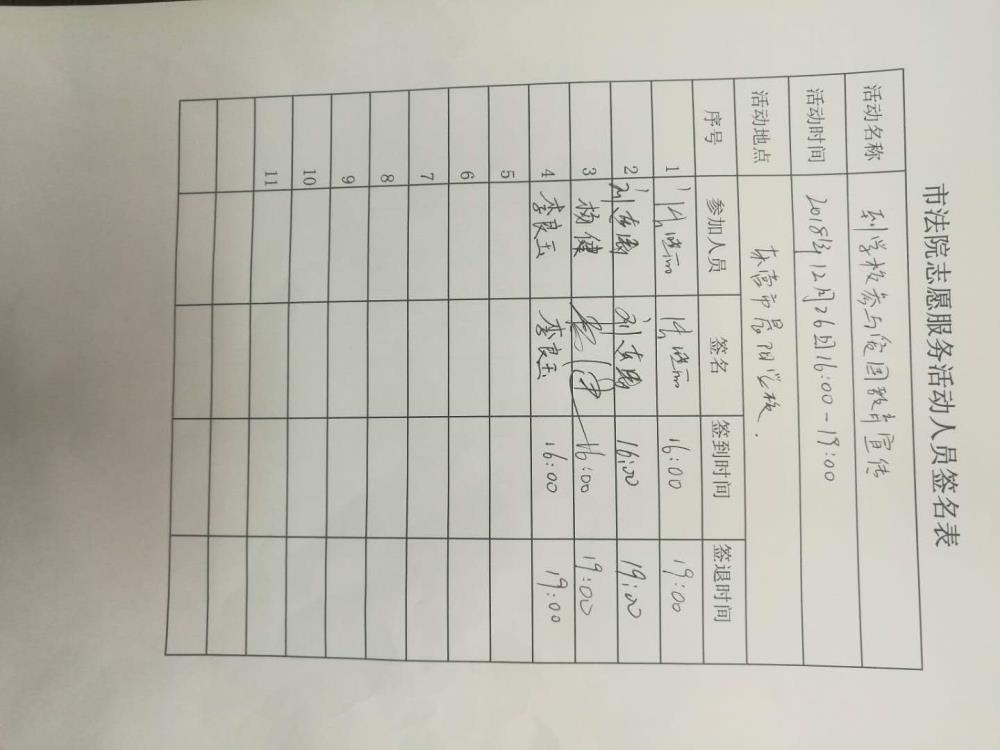 市法院志愿服务活动人员签名表
活动名称 到学校参与爱国教育宣传
活动时间 2018年12月26日16:00-19:00
活动地点 东营市晨阳学校.
序号 参加人员 签名 签到时间 签退时间
1 16:00 19:00
2 刘 刘 16:00 19:00
3 杨健 16:00 19:00
4 李良玉 李良玉 16:00 19:00
5
6
7
8
9
10
11